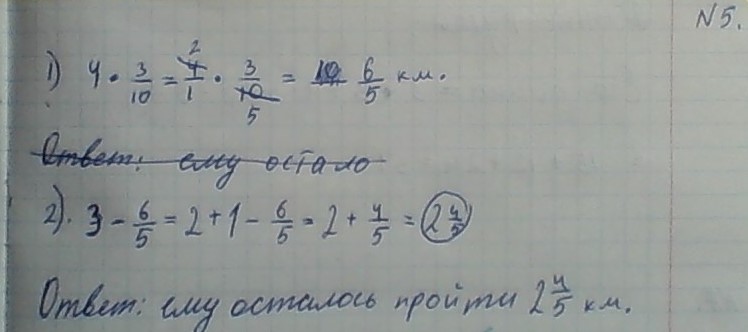 N 5.
1) 4 · 3/10 = 4/1 · 3/10 = 6/5 км.
2 5
Ответ: ему остало
2). 3 - 6/5 = 2 + 1 - 6/5 = 2 + 4/5 = 2 4/5
Ответ: ему осталось пройти 2 4/5 км.